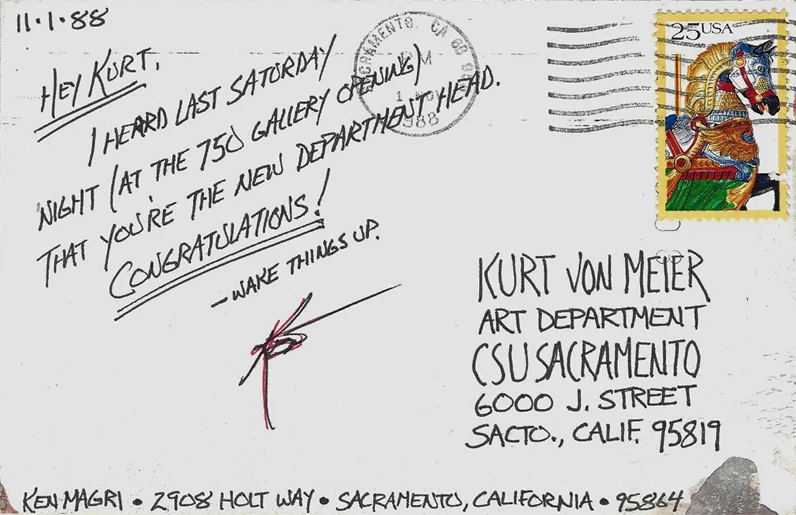 11·1·88
HEY KURT,
I HEARD LAST SATURDAY
NIGHT (AT THE 750 GALLERY OPENING)
THAT YOU'RE THE NEW DEPARTMENT HEAD.
CONGRATULATIONS!
—WAKE THINGS UP.
SACRAMENTO, CA
PM
1988
25USA
KURT VON MEIER
ART DEPARTMENT
CSU SACRAMENTO
6000 J. STREET
SACTO., CALIF. 95819
KEN MAGRI • 2908 HOLT WAY • SACRAMENTO, CALIFORNIA • 95864